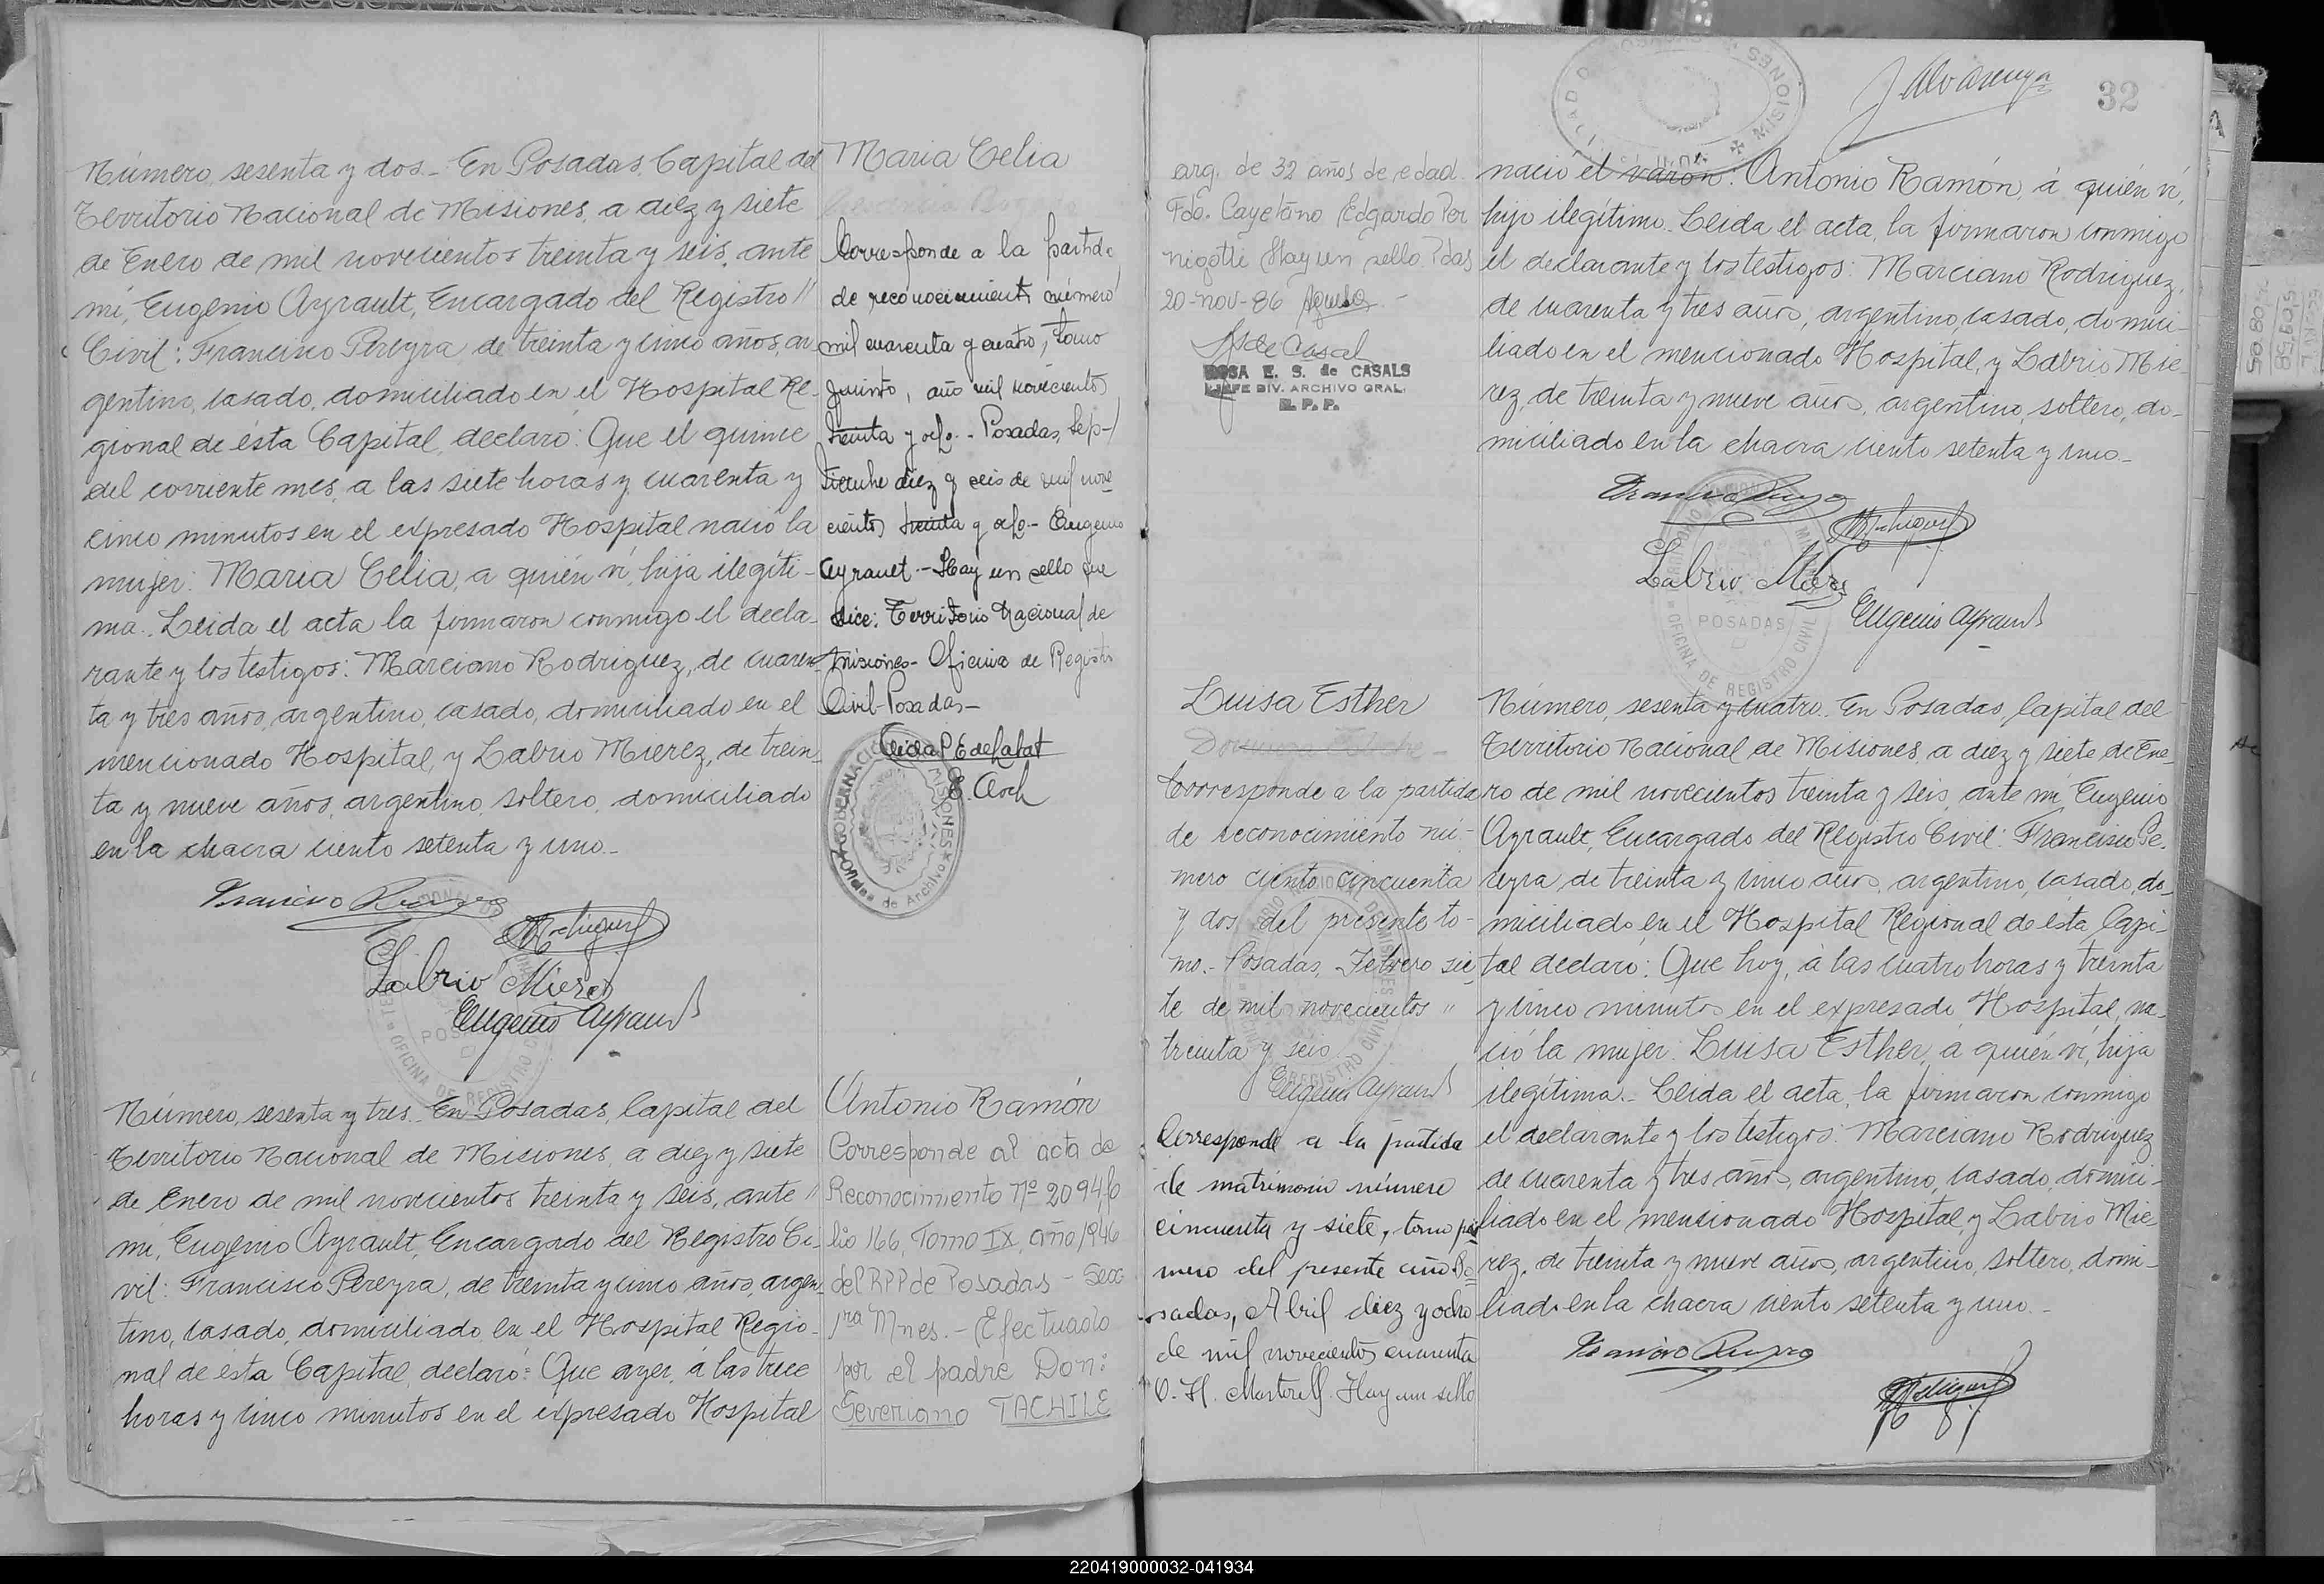 Número, sesenta y dos.- En Posadas, Capital del
Territorio Nacional de Misiones, a diez y siete
de Enero de mil novecientos treinta y seis, ante
mí, Eugenio Ayrault, Encargado del Registro //
Civil: Francisco Pereyra, de treinta y cinco años, ar
gentino, casado, domiciliado en el Hospital Re-
gional de ésta Capital, declaro: Que el quince
del corriente mes, a las siete horas y cuarenta y
cinco minutos en el expresado Hospital nació la
mujer: Maria Celia, a quién ví, hija ilegíti-
ma.- Leida el acta la firmaron conmigo el decla-
rante y los testigos: Marciano Rodriguez, de cuaren-
ta y tres años, argentino, casado, domiciliado en el
mencionado Hospital, y Labrio Mierez, de trein-
ta y nueve años, argentino, soltero, domiciliado
en la chacra ciento setenta y uno.-
Labrio Mierez
Eugenio Ayrault
Maria Celia
Corresponde a la partida
de reconocimiento número
mil cuarenta y cuatro, tomo
quinto, año mil novecientos
treinta y ocho.- Posadas, Sep-/
tiembre diez y seis de mil nove
cientos treinta y ocho.- Eugenio
Ayrault.- Hay un sello que
dice: Territorio Nacional de
Misiones- Oficina de Registro
Civil-Posadas-
Número, sesenta y tres.- En Posadas, Capital del
Territorio Nacional de Misiones, a diez y siete
de Enero de mil novecientos treinta y seis, ante //
mí, Eugenio Ayrault, Encargado del Registro Ci-
vil: Francisco Pereyra, de treinta y cinco años, argen-
tino, casado, domiciliado en el Hospital Regio-
nal de ésta Capital, declaró: Que ayer, á las trece
horas y cinco minutos en el expresado Hospital
Antonio Ramón
Corresponde al acta de
Reconocimiento Nº 2094, fo
lio 166, Tomo IX, año 1946
del RPP de Posadas - Secc
1ra Mnes.- Efectuado
por el padre Don:
Severiano TACHILE
32
arg. de 32 años de edad.
Fdo. Cayetano Edgardo Per
nigotti Hay un sello Pdas
20-nov-86
ROSA E. S. de CASALS
JEFE DIV. ARCHIVO GRAL.
R. P. P.
nació el varón: Antonio Ramón, á quién ví,
hijo ilegítimo.- Leida el acta, la firmaron conmigo
el declarante y los testigos: Marciano Rodriguez,
de cuarenta y tres años, argentino, casado, domici-
liado en el mencionado Hospital, y Labrio Mie-
rez, de treinta y nueve años, argentino, soltero, do-
miciliado en la chacra ciento setenta y uno.-
Labrio Mierez
Eugenio Ayrault
POSADAS
OFICINA DE REGISTRO CIVIL
Luisa Esther
Corresponde a la partida
de reconocimiento nú-
mero ciento cincuenta
y dos del presente to-
mo.- Posadas, Febrero sie
te de mil novecientos "
treinta y seis.
Eugenio Ayrault
Corresponde a la partida
de matrimonio número
cincuenta y siete, tomo pri
mero del presente año. Po
sadas, Abril diez y ocho
de mil novecientos cuarenta
O. H. Martorell. Hay un sello
Número, sesenta y cuatro.- En Posadas, Capital del
Territorio Nacional de Misiones, a diez y siete de Ene-
ro de mil novecientos treinta y seis, ante mí, Eugenio
Ayrault, Encargado del Registro Civil: Francisco Pe-
reyra, de treinta y cinco años, argentino, casado, do-
miciliado en el Hospital Regional de ésta Capi-
tal declaró: Que hoy, á las cuatro horas y treinta
y cinco minutos en el expresado Hospital, na-
ció la mujer: Luisa Esther, á quién ví, hija
ilegítima.- Leida el acta, la firmaron conmigo
el declarante y los testigos: Marciano Rodriguez
de cuarenta y tres años, argentino, casado, domici-
liado en el mencionado Hospital, y Labrio Mie
rez, de treinta y nueve años, argentino, soltero, domi-
liado en la chacra ciento setenta y uno.-
220419000032-041934